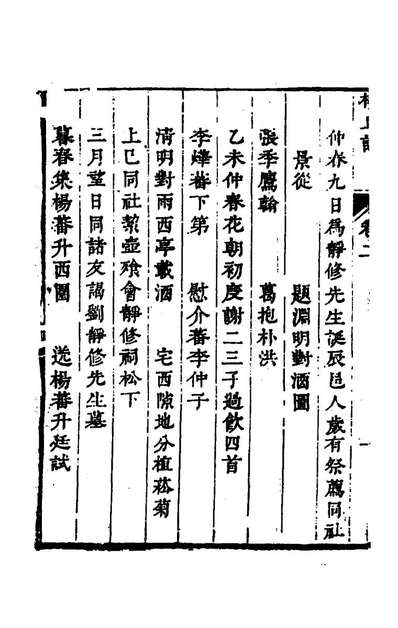 仲春九日為靜修先生誕辰邑人歲有祭薦同社
景從　題淵明對酒圖
張季鷹翰　葛抱朴洪
乙未仲春花朝初度謝二三子過飲四首
李燁蕃下第　慰介蕃李仲子
清明對雨西亭載酒　宅西隙地分植菘菊
上巳同社絜壺飱會靜修祠松下
三月望日同諸友謁劉靜修先生墓
暮春集楊蕃升西園　送楊蕃升廷試
卷二